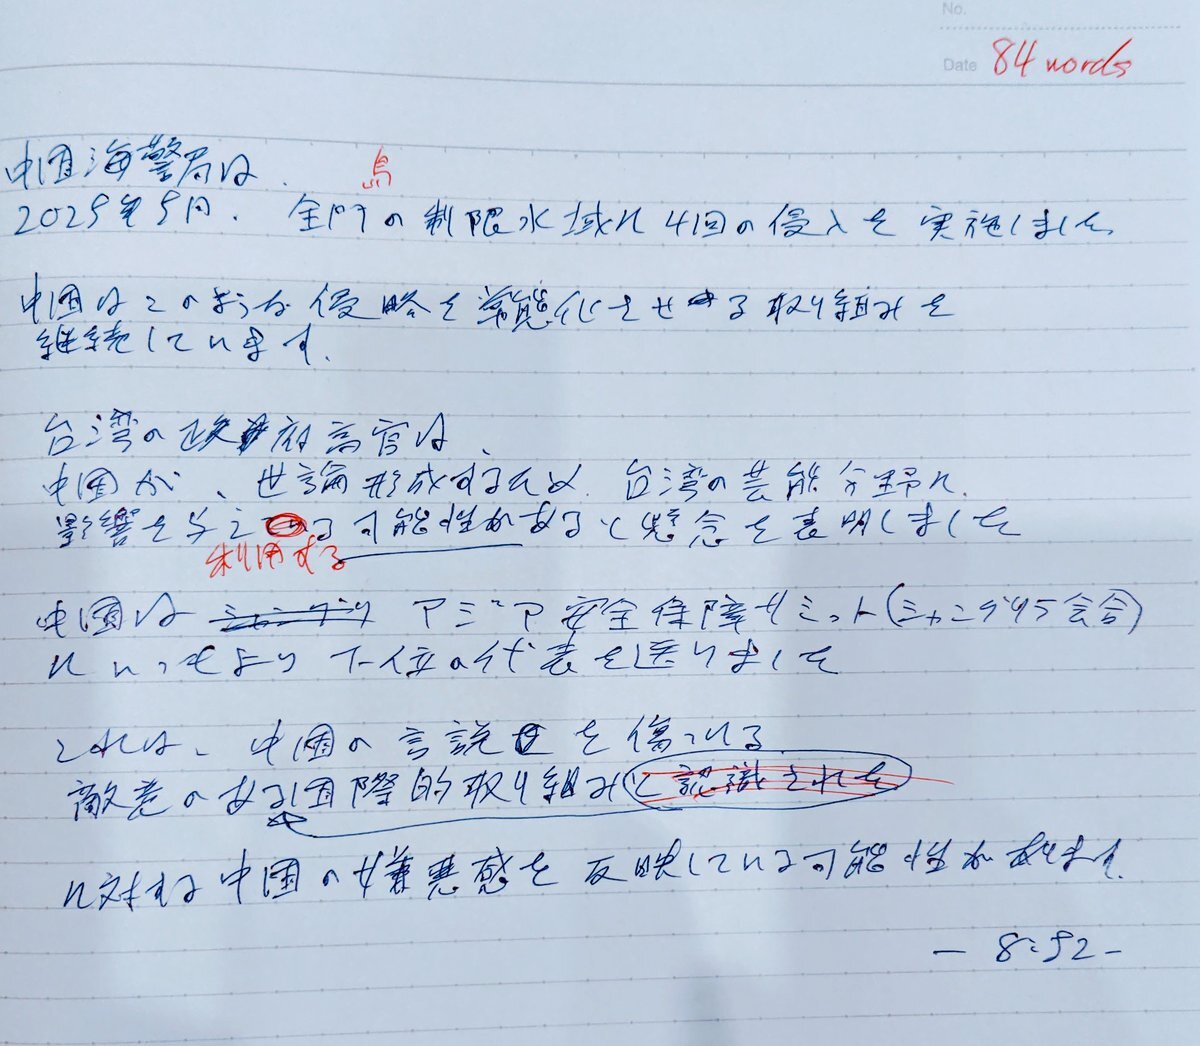 No.
Date 84 words
中国海警局は、
島
2025年5月、金門の制限水域に4回の侵入を実施しました
中国はこのような侵略を常態化をさせる取り組みを
継続しています。
台湾の政府高官は、
中国が、世論形成するため、台湾の芸能分野に、
影響を与える可能性があると懸念を表明しました
利用する
中国は シャングリ アジア安全保障サミット(シャングリラ会合)
にいつもより下位の代表を送りました
これは、中国の言説を傷つける
敵意のある国際的取り組みと認識された
に対する中国の嫌悪感を反映している可能性があります。
- 8:52 -